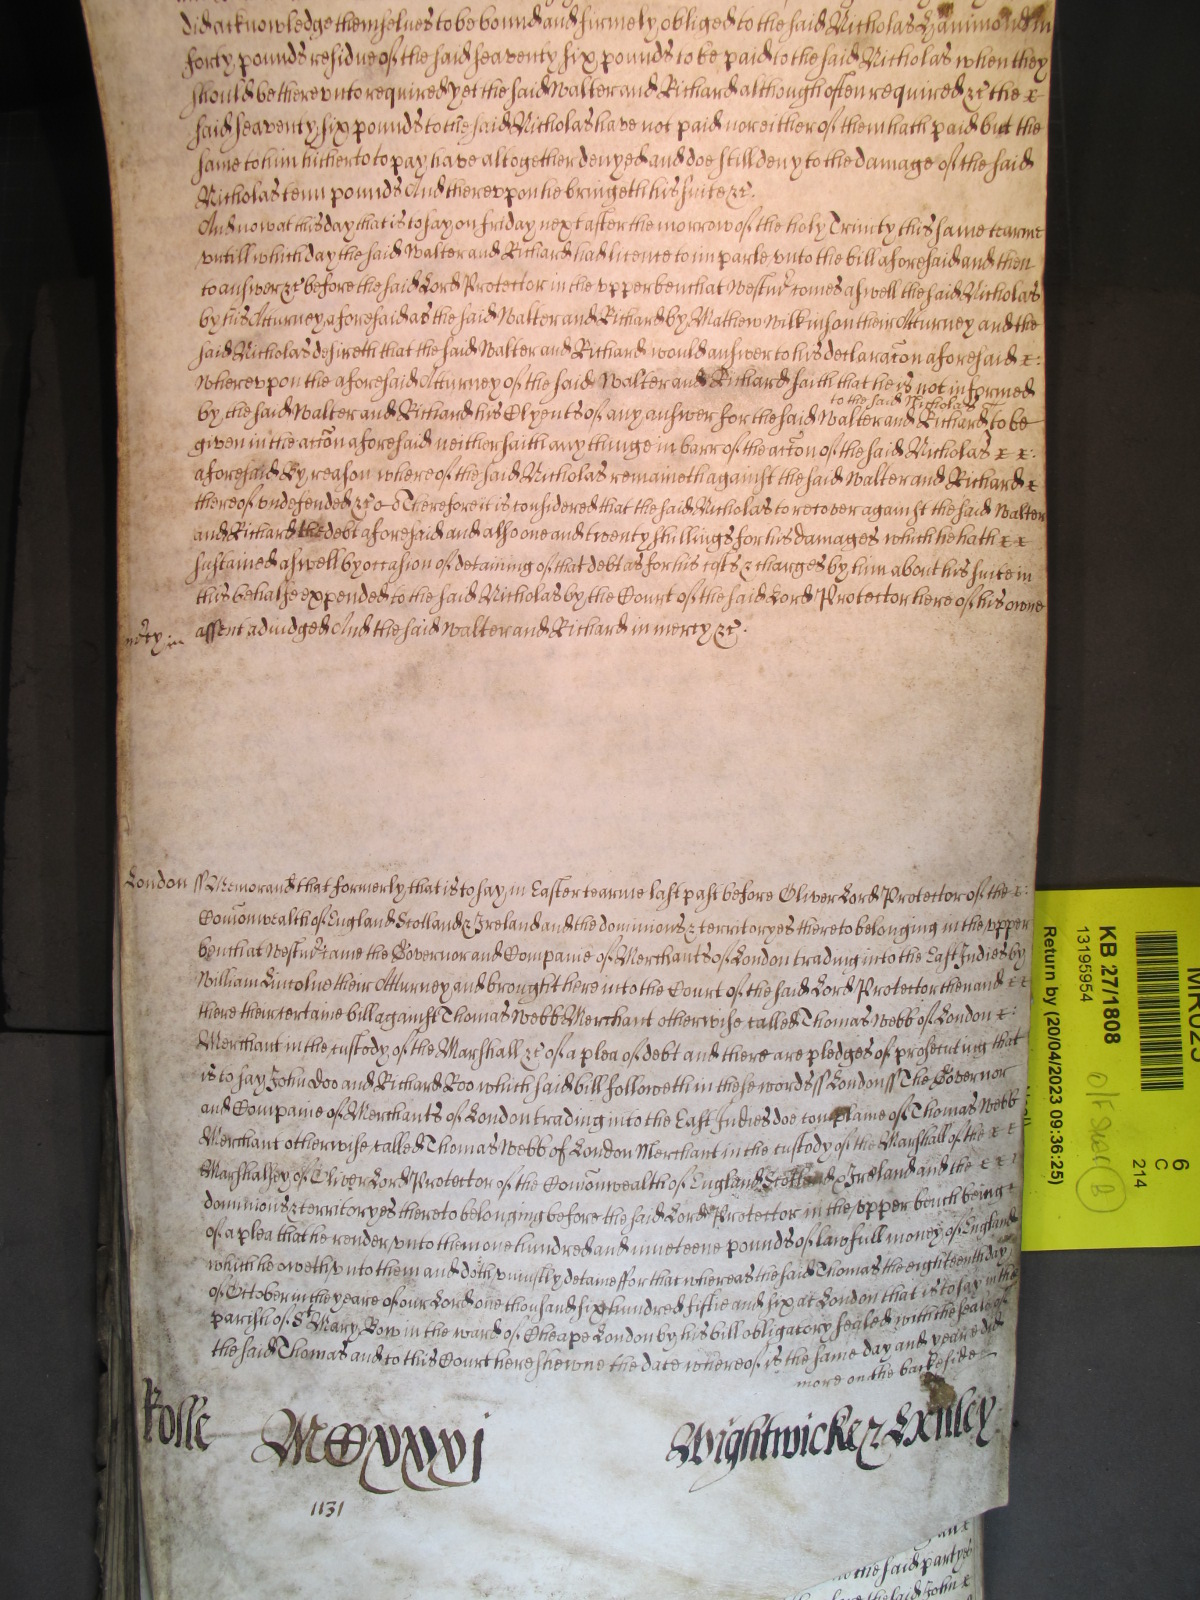 did acknowledge themselues to be bound and firmely obliged to the said Nicholas Hammond in
forty pounds residue of the said seaventy six pounds to be paid to the said Nicholas when they
should be therevnto required yet the said Walter and Richard although often required &c the
said seaventy six pounds to the said Nicholas have not paid nor either of them hath paid but the
same to him hitherto to pay have altogether denyed and doe still deny to the damage of the said
Nicholas tenn pounds And therevpon he bringeth his suite &c.
And now at this day that is to say on Friday next after the morrow of the holy Trinity this same tearme
vntill which day the said Walter and Richard had licence to imparle vnto the bill aforesaid and then
to answer &c before the said Lord Protector in the vpper bench at Westmr comes aswell the said Nicholas
by his Atturney aforesaid as the said Walter and Richard by Mathew Wilkinson their Atturney and the
said Nicholas desireth that the said Walter and Richard would answer to his declaracon aforesaid
wherevpon the aforesaid Atturney of the said Walter and Richard saith that he is not informed
to the said Nicholas
by the said Walter and Richard his Clyents of any answer for the said Walter and Richard to be
given in the accon aforesaid neither saith any thinge in barr of the accon of the said Nicholas
aforesaid By reason whereof the said Nicholas remaineth against the said Walter and Richard
thereof vndefended &c Therefore it is considered that the said Nicholas to recover against the said Walter
and Richard the debt aforesaid and also one and twenty shillings for his damages which he hath
sustained aswell by occasion of detaining of that debt as for his costs & charges by him about his suite in
this behalfe expended to the said Nicholas by the Court of the said Lord Protector here of his owne
assent adiudged And the said Walter and Richard in mercy &c.
mercy
London ss Memorand that formerly that is to say in Easter tearme last past before Oliver Lord Protector of the
Comonwealth of England Scotland & Ireland and the dominions & territoryes thereto belonging in the vpper
bench at Westmr came the Governor and Companie of Merchants of London trading into the East Indies by
William Lincolne their Atturney and brought here into the Court of the said Lord Protector then and
there their certaine bill against Thomas Webb Merchant otherwise called Thomas Webb of London
Merchant in the custody of the Marshall &c of a plea of debt and there are pledges of prosecuting that
is to say John Doo and Richard Roo which said bill followeth in these words ss London ss The Governor
and Companie of Merchants of London trading into the East Indies doe complaine of Thomas Webb
Merchant otherwise called Thomas Webb of London Merchant in the custody of the Marshall of the
Marshalsey of Oliver Lord Protector of the Comonwealth of England Scotland & Ireland and the
dominions & territoryes thereto belonging before the said Lord Protector in the vpper bench being
of a plea that he render vnto them one hundred and nineteene pounds of lawfull money of England
which he oweth vnto them and doth vniustly detaine ffor that whereas the said Thomas the eighteenth day
of October in the yeare of our Lord one thousand six hundred fiftie and six at London that is to say in the
parish of St Mary Bow in the ward of Cheape London by his bill obligatory sealed with the seale of
the said Thomas and to this Court here shewne the date whereof is the same day and yeare did
more on the backeside
Rolle MCXXXI Wightwicke &
1131
the said party
the said John
MR025
6
C
214
KB 27/1808
13195954
Return by (20/04/2023 09:36:25)
B